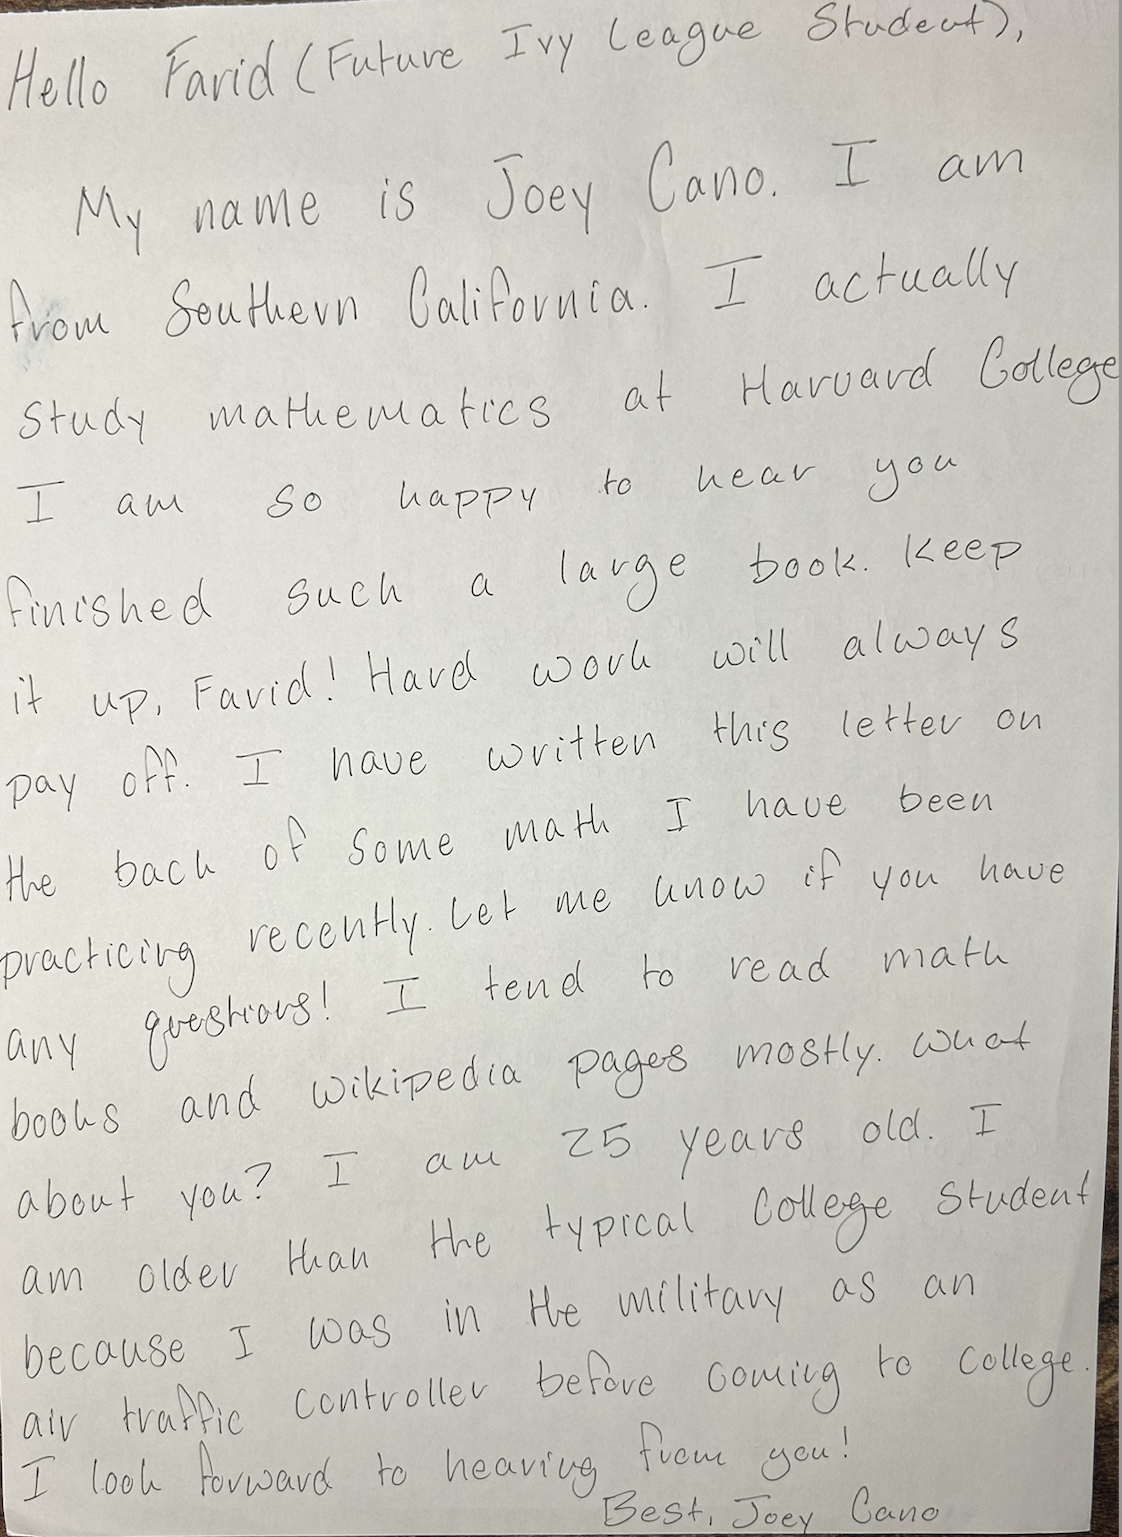 Hello Farid (Future Ivy League Student),
My name is Joey Cano. I am
from Southern California. I actually
study mathematics at Harvard College
I am so happy to hear you
finished such a large book. Keep
it up, Farid! Hard work will always
pay off. I have written this letter on
the back of some math I have been
practicing recently. Let me know if you have
any questions! I tend to read math
books and wikipedia pages mostly. What
about you? I am 25 years old. I
am older than the typical College Student
because I was in the military as an
air traffic controller before coming to college.
I look forward to hearing from you!
Best, Joey Cano